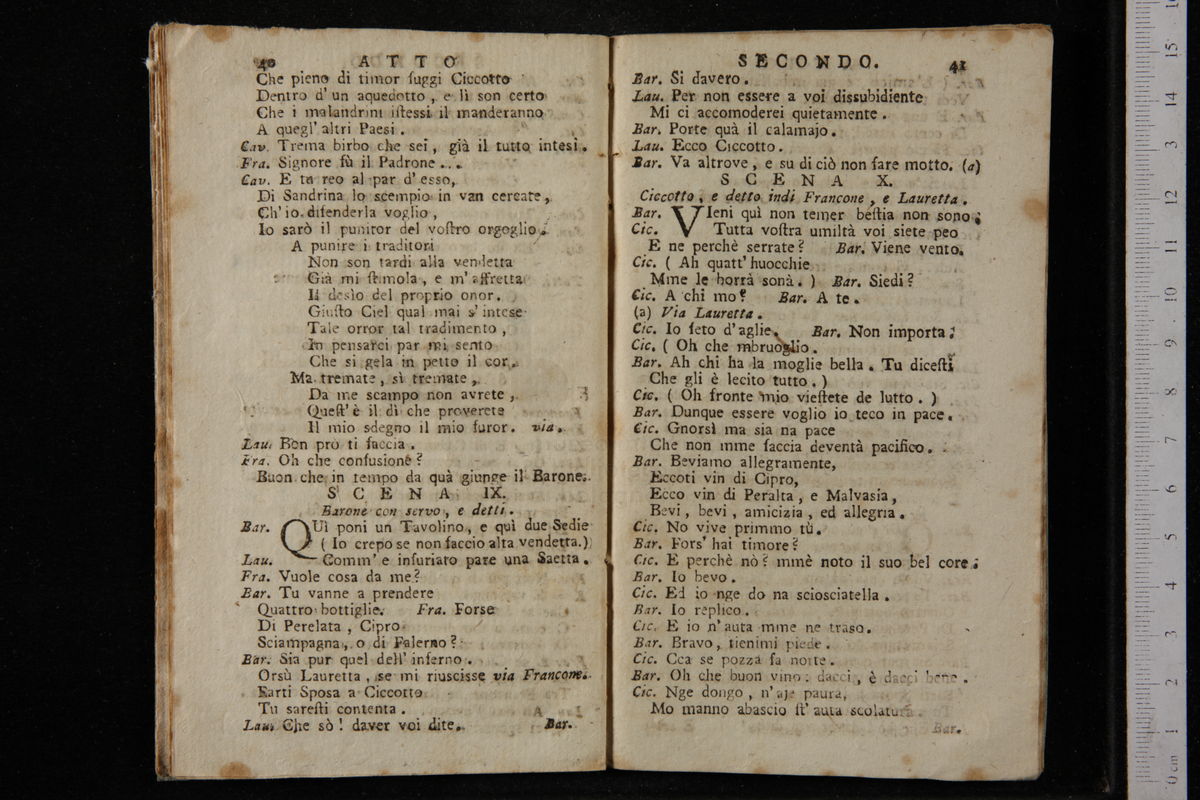 40 ATTO
Che pieno di timor fuggì Ciccotto
Dentro d' un aquedotto, e lì son certo
Che i malandrini iſteſſi il manderanno
A quegl' altri Paesi.
Cav. Trema birbo che sei, già il tutto intesi.
Fra. Signore fù il Padrone...
Cav. E tu reo al par d' esso,
Di Sandrina lo scempio in van cercate,
Ch' io difenderla voglio,
Io sarò il punitor del voſtro orgoglio.
A punire i traditori
Non son tardi alla vendetta
Già mi ſtimola, e m' affretta
Il desìo del proprio onor.
Giuſto Ciel qual mai s' intese
Tale orror tal tradimento,
In pensarci par mi sento
Che si gela in petto il cor.
Ma tremate, sì tremate,
Da me scampo non avrete,
Queſt' è il dì che proverete
Il mio sdegno il mio furor. via.
Lau. Bon prò ti faccia.
Fra. Oh che confusione?
Buon che in tempo da quà giunge il Barone.
SCENA IX.
Barone con servo, e detti.
Bar. QUì poni un Tavolino, e quì due Sedie
( Io crepo se non faccio alta vendetta.)
Lau. Comm' e infuriato pare una Saetta.
Fra. Vuole cosa da me?
Bar. Tu vanne a prendere
Quattro bottiglie. Fra. Forse
Di Perelata, Cipro
Sciampagna, o di Falerno?
Bar. Sia pur quel dell' inferno.
Orsù Lauretta, se mi riuscisse via Francone.
Farti Sposa a Ciccotto
Tu sareſti contenta.
Lau. Che sò! daver voi dite.
Bar.
SECONDO. 41
Bar. Si davero.
Lau. Per non essere a voi dissubidiente
Mi ci accomoderei quietamente.
Bar. Porte quà il calamajo.
Lau. Ecco Ciccotto.
Bar. Va altrove, e su di ciò non fare motto. (a)
SCENA X.
Ciccotto, e detto indi Francone, e Lauretta.
Bar. VIeni quì non temer beſtia non sono;
Cic. Tutta voſtra umiltà voi siete peo
E ne perchè serrate? Bar. Viene vento.
Cic. ( Ah quatt' huocchie
Mme le horrà sonà. ) Bar. Siedi?
Cic. A chi mo? Bar. A te.
(a) Via Lauretta.
Cic. Io feto d'aglie. Bar. Non importa;
Cic. ( Oh che mbruoglio.
Bar. Ah chi ha la moglie bella. Tu diceſti
Che gli è lecito tutto. )
Cic. ( Oh fronte mio vieſtete de lutto. )
Bar. Dunque essere voglio io teco in pace.
Cic. Gnorsì ma sia na pace
Che non mme faccia deventà pacifico.
Bar. Beviamo allegramente,
Eccoti vin di Cipro,
Ecco vin di Peralta, e Malvasia,
Bevi, bevi, amicizia, ed allegria.
Cic. No vive primmo tù.
Bar. Fors' hai timore?
Cic. E perchè nò? mmè noto il suo bel core;
Bar. Io bevo.
Cic. Ed io nge do na sciosciatella.
Bar. Io replico.
Cic. E io n' auta mme ne traso.
Bar. Bravo, tienimi piede.
Cic. Cca se pozza fa notte.
Bar. Oh che buon vino: dacci, è dacci bene.
Cic. Nge dongo, n'aje paura,
Mo manno abascio ſt' auta scolatura.
Bar.
0 cm 1 2 3 4 5 6 7 8 9 10 11 12 3 14 15